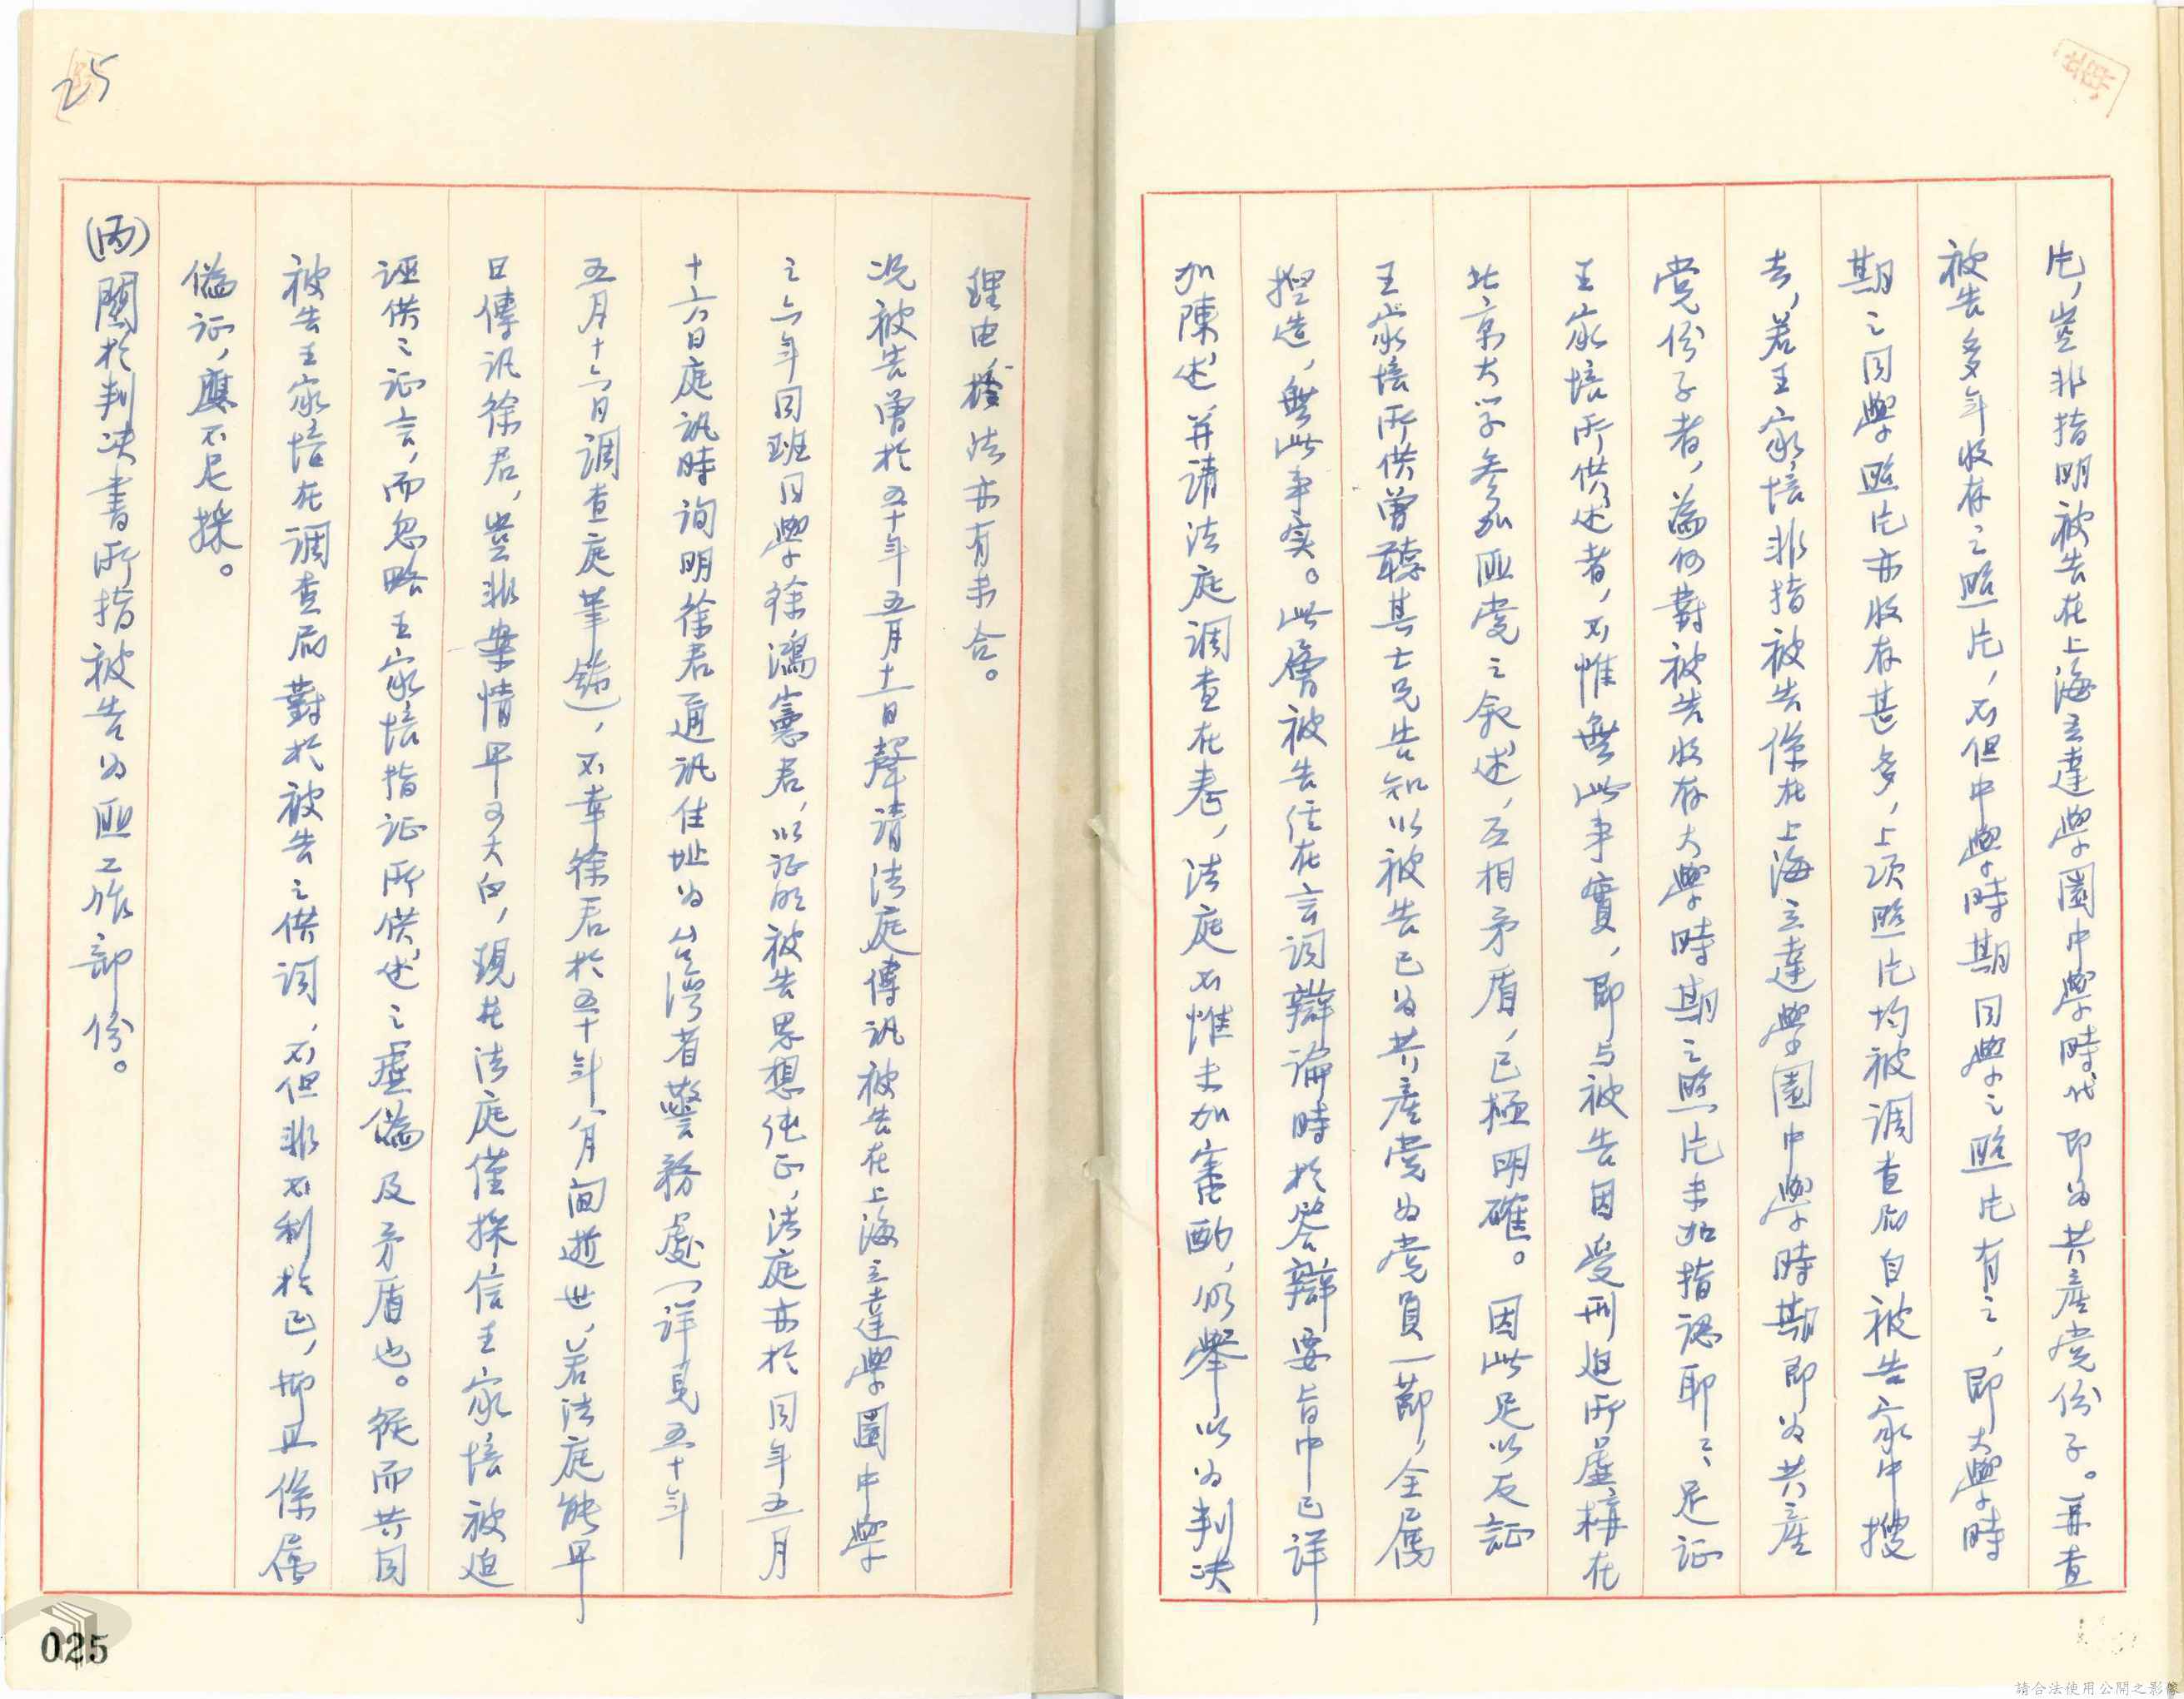 片，豈非指明被告在上海立達學園中學時代即为共產党份子。再查
被告多年收存之照片，不但中學時期同學之照片有之，即大學時
期之同學照片亦收存甚多，上項照片均被調查局自被告家中搜
去，若王家培非指被告係在上海立達學園中學時期即为共產
党份子者，為何對被告收存大學時期之照片未加指認耶？足证
王家培所供述者，不惟無此事實，即与被告因受刑迫所虛構在
北京大学参加匪党之叙述，互相矛盾，已極明確。因此足以反証
王家培所供曾聽其士兄告知以被告已为共產党为党員一節，全属
捏造，無此事实。此層被告任在言词辯論時於答辯要旨中已詳
加陳述并请法庭调查在卷，法庭不惟未加審酌，仍舉以为判决
理由，於法亦有未合。
况被告曾於五十年五月十一日聲请法庭傳讯被告在上海立達學園中學
之六年同班同學徐鴻憲君，以证明被告思想纯正，法庭亦於同年五月
十六日庭訊時询明徐君通讯住址为台湾省警務處（詳見五十年
五月十六日调查庭筆錄），不幸徐君於五十年八月间逝世，若法庭能早
日傳讯徐君，豈非案情早可大白，現在法庭僅採信王家培被迫
诬供之证言，而忽略王家培指证所供述之虛偽及矛盾也。縱而共同
被告王家培在调查局對於被告之供词，不但非不利於己，抑且係属
偽证，應不足採。
(丙)關於判决書所指被告为匪工作部份。
25
025
請合法使用公開之影像